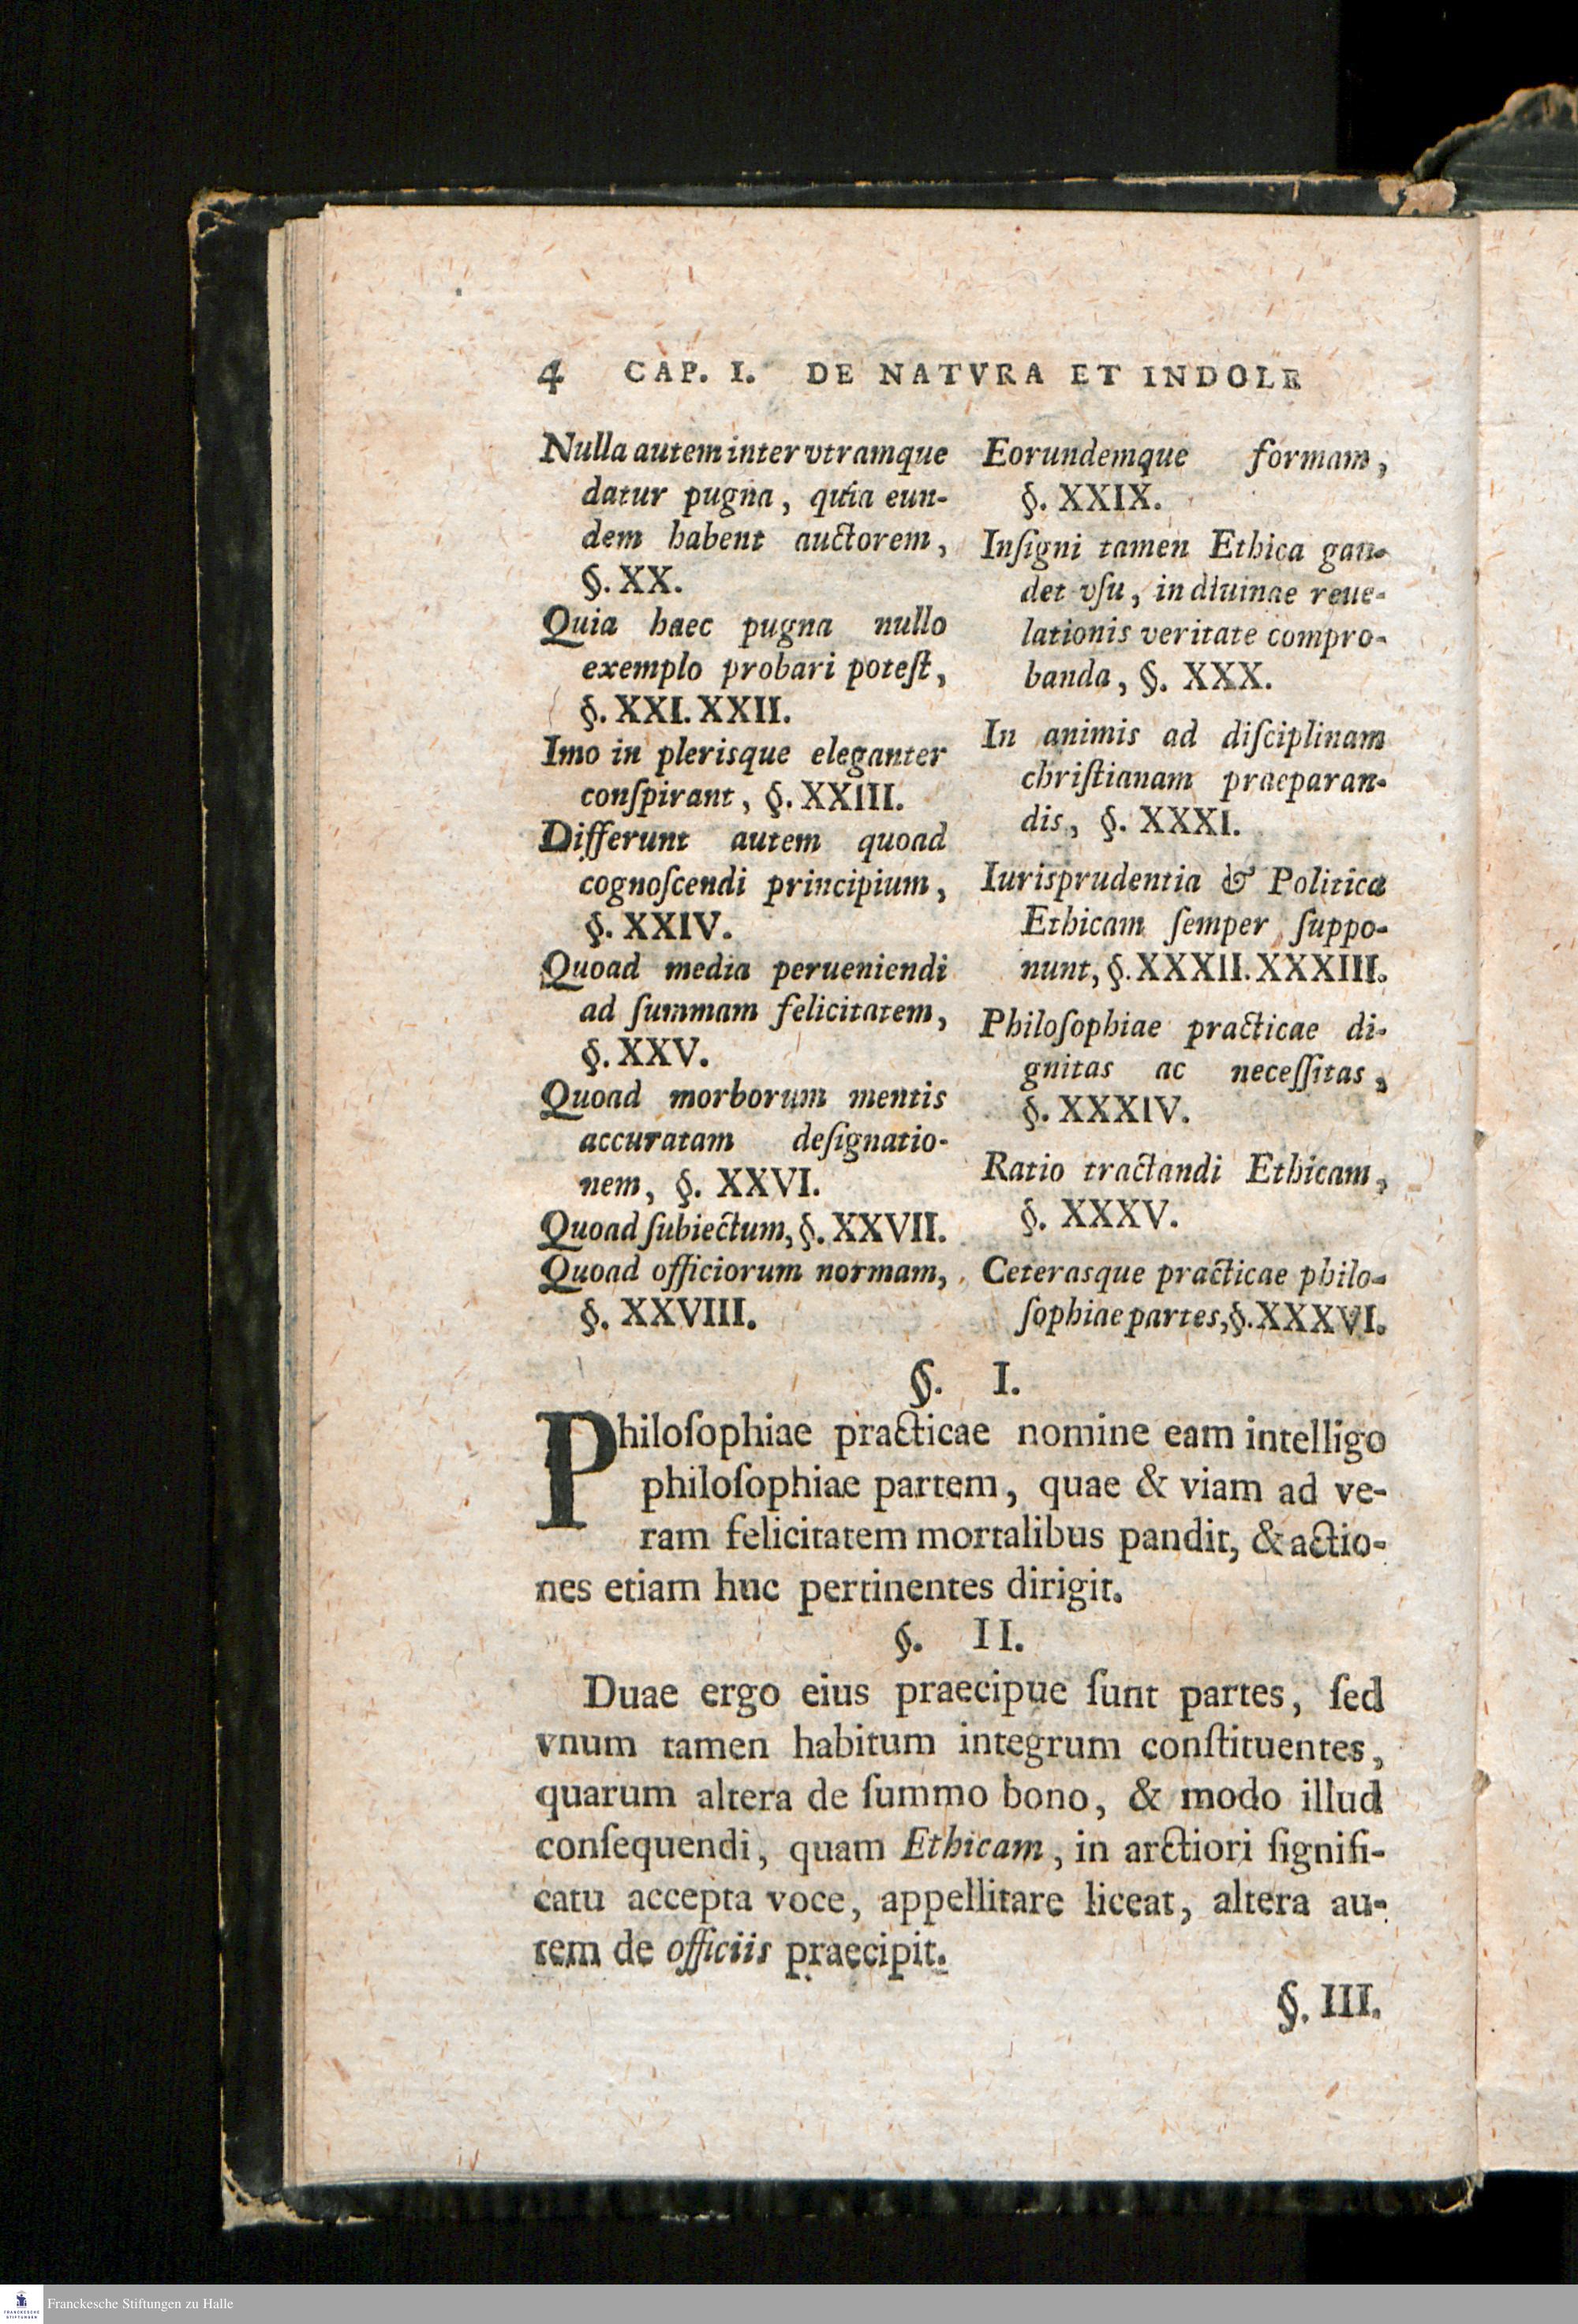 4 CAP. I. DE NATVRA ET INDOLE
Nulla autem inter vtramque
datur pugna, quia eun-
dem habent auctorem,
§. XX.
Quia haec pugna nullo
exemplo probari poteſt,
§. XXI. XXII.
Imo in plerisque eleganter
conſpirant, §. XXIII.
Differunt autem quoad
cognoſcendi principium,
§. XXIV.
Quoad media perueniendi
ad ſummam felicitatem,
§. XXV.
Quoad morborum mentis
accuratam deſignatio-
nem, §. XXVI.
Quoad ſubiectum, §. XXVII.
Quoad officiorum normam,
§. XXVIII.
Eorundemque formam,
§. XXIX.
Inſigni tamen Ethica gau-
det vſu, in diuinae reue-
lationis veritate compro-
banda, §. XXX.
In animis ad diſciplinam
chriſtianam praeparan-
dis, §. XXXI.
Iurisprudentia & Politica
Ethicam ſemper ſuppo-
nunt, §. XXXII. XXXIII.
Philoſophiae practicae di-
gnitas ac neceſſitas,
§. XXXIV.
Ratio tractandi Ethicam,
§. XXXV.
Ceterasque practicae philo-
ſophiae partes, §. XXXVI.
§. I.
Philoſophiae practicae nomine eam intelligo
philoſophiae partem, quae & viam ad ve-
ram felicitatem mortalibus pandit, & actio-
nes etiam huc pertinentes dirigit.
§. II.
Duae ergo eius praecipue ſunt partes, ſed
vnum tamen habitum integrum conſtituentes,
quarum altera de ſummo bono, & modo illud
conſequendi, quam Ethicam, in arctiori ſignifi-
catu accepta voce, appellitare liceat, altera au-
tem de officiis praecipit.
§. III.
FRANCKESCHE
STIFTUNGEN
Franckesche Stiftungen zu Halle